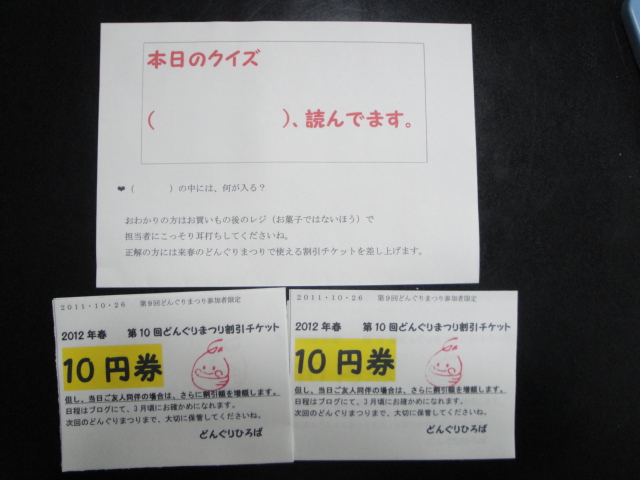 本日のクイズ
(　　　　　　　)、読んでます。
❤（　　　）の中には、何が入る？
おわかりの方はお買いもの後のレジ（お菓子ではないほう）で
担当者にこっそり耳打ちしてくださいね。
正解の方には来春のどんぐりまつりで使える割引チケットを差し上げます。
2011・10・26　第9回どんぐりまつり参加者限定
2012年春　第10回どんぐりまつり割引チケット
10円券
但し、当日ご友人同伴の場合は、さらに割引額を増額します。
日程はブログにて、3月頃にお確かめになれます。
次回のどんぐりまつりまで、大切に保管してくださいね。
どんぐりひろば
2011・10・26　第9回どんぐりまつり参加者限定
2012年春　第10回どんぐりまつり割引チケット
10円券
但し、当日ご友人同伴の場合は、さらに割引額を増額します。
日程はブログにて、3月頃にお確かめになれます。
次回のどんぐりまつりまで、大切に保管してくださいね。
どんぐりひろば